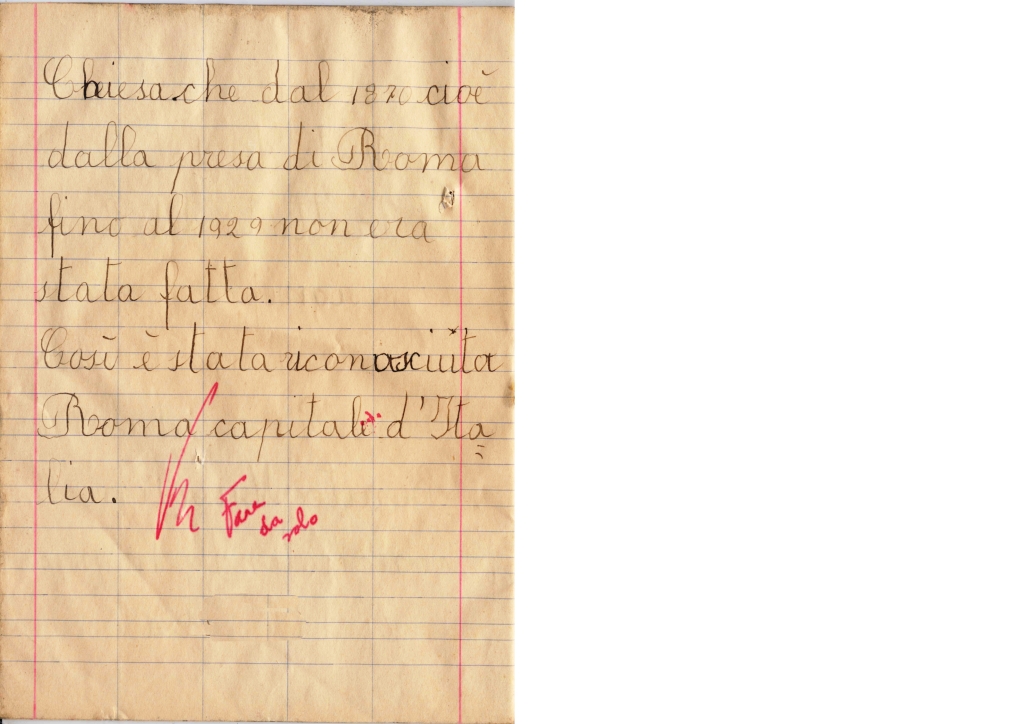 Chiesa che dal 1870 cioè
dalla presa di Roma
fino al 1929 non era
stata fatta.
Così è stata riconasciuta
Roma capitale d'Ita=
lia.
Fare
da
solo